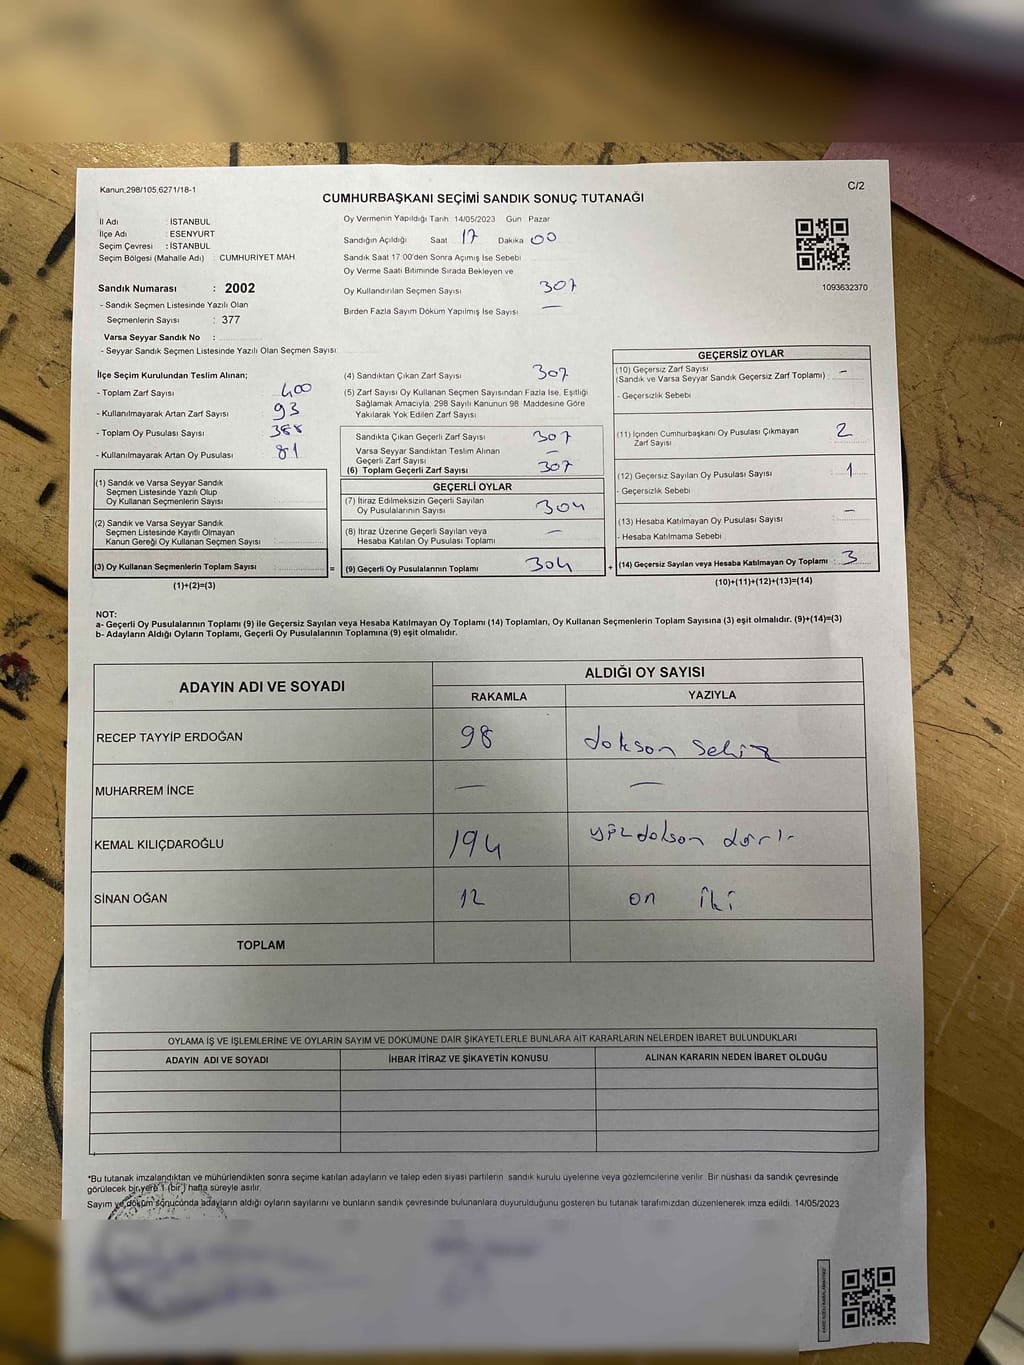 Kanun;298/105;6271/18-1
C/2
CUMHURBAŞKANI SEÇİMİ SANDIK SONUÇ TUTANAĞI
İl Adı : İSTANBUL
İlçe Adı : ESENYURT
Seçim Çevresi : İSTANBUL
Seçim Bölgesi (Mahalle Adı) : CUMHURİYET MAH
Sandık Numarası : 2002
- Sandık Seçmen Listesinde Yazılı Olan
Seçmenlerin Sayısı : 377
Varsa Seyyar Sandık No :
- Seyyar Sandık Seçmen Listesinde Yazılı Olan Seçmen Sayısı:
Oy Vermenin Yapıldığı Tarih: 14/05/2023 Gün Pazar
Sandığın Açıldığı Saat 17 Dakika 00
Sandık Saat 17:00'den Sonra Açımış İse Sebebi
Oy Verme Saati Bitiminde Sırada Bekleyen ve
Oy Kullandırılan Seçmen Sayısı 307
Birden Fazla Sayım Döküm Yapılmış İse Sayısı —
1093632370
İlçe Seçim Kurulundan Teslim Alınan;
- Toplam Zarf Sayısı 400
- Kullanılmayarak Artan Zarf Sayısı 93
- Toplam Oy Pusulası Sayısı 388
- Kullanılmayarak Artan Oy Pusulası 81
(1) Sandık ve Varsa Seyyar Sandık
Seçmen Listesinde Yazılı Olup
Oy Kullanan Seçmenlerin Sayısı
(2) Sandık ve Varsa Seyyar Sandık
Seçmen Listesinde Kayıtlı Olmayan
Kanun Gereği Oy Kullanan Seçmen Sayısı
(3) Oy Kullanan Seçmenlerin Toplam Sayısı =
(1)+(2)=(3)
(4) Sandıktan Çıkan Zarf Sayısı 307
(5) Zarf Sayısı Oy Kullanan Seçmen Sayısından Fazla İse, Eşitliği
Sağlamak Amacıyla, 298 Sayılı Kanunun 98. Maddesine Göre
Yakılarak Yok Edilen Zarf Sayısı
Sandıkta Çıkan Geçerli Zarf Sayısı 307
Varsa Seyyar Sandıktan Teslim Alınan
Geçerli Zarf Sayısı —
(6) Toplam Geçerli Zarf Sayısı 307
GEÇERLİ OYLAR
(7) İtiraz Edilmeksizin Geçerli Sayılan
Oy Pusulalarının Sayısı 304
(8) İtiraz Üzerine Geçerli Sayılan veya
Hesaba Katılan Oy Pusulası Toplamı —
(9) Geçerli Oy Pusulalarının Toplamı 304 +
GEÇERSİZ OYLAR
(10) Geçersiz Zarf Sayısı
(Sandık ve Varsa Seyyar Sandık Geçersiz Zarf Toplamı) : -
- Geçersizlik Sebebi
(11) İçinden Cumhurbaşkanı Oy Pusulası Çıkmayan
Zarf Sayısı 2
(12) Geçersiz Sayılan Oy Pusulası Sayısı 1
- Geçersizlik Sebebi
(13) Hesaba Katılmayan Oy Pusulası Sayısı -
- Hesaba Katılmama Sebebi
(14) Geçersiz Sayılan veya Hesaba Katılmayan Oy Toplamı : 3
(10)+(11)+(12)+(13)=(14)
NOT:
a- Geçerli Oy Pusulalarının Toplamı (9) ile Geçersiz Sayılan veya Hesaba Katılmayan Oy Toplamı (14) Toplamları, Oy Kullanan Seçmenlerin Toplam Sayısına (3) eşit olmalıdır. (9)+(14)=(3)
b- Adayların Aldığı Oyların Toplamı, Geçerli Oy Pusulalarının Toplamına (9) eşit olmalıdır.
ADAYIN ADI VE SOYADI
ALDIĞI OY SAYISI
RAKAMLA YAZIYLA
RECEP TAYYİP ERDOĞAN 98 dokson sekiz
MUHARREM İNCE — —
KEMAL KILIÇDAROĞLU 194 yüzdokson dört
SİNAN OĞAN 12 on iki
TOPLAM
OYLAMA İŞ VE İŞLEMLERİNE VE OYLARIN SAYIM VE DÖKÜMÜNE DAİR ŞİKAYETLERLE BUNLARA AİT KARARLARIN NELERDEN İBARET BULUNDUKLARI
ADAYIN ADI VE SOYADI İHBAR İTİRAZ VE ŞİKAYETİN KONUSU ALINAN KARARIN NEDEN İBARET OLDUĞU
*Bu tutanak imzalandıktan ve mühürlendikten sonra seçime katılan adayların ve talep eden siyasi partilerin sandık kurulu üyelerine veya gözlemcilerine verilir. Bir nüshası da sandık çevresinde
görülecek bir yere 1 (bir ) hafta süreyle asılır.
Sayım ve döküm sonucunda adayların aldığı oyların sayılarını ve bunların sandık çevresinde bulunanlara duyurulduğunu gösteren bu tutanak tarafımızdan düzenlenerek imza edildi. 14/05/2023